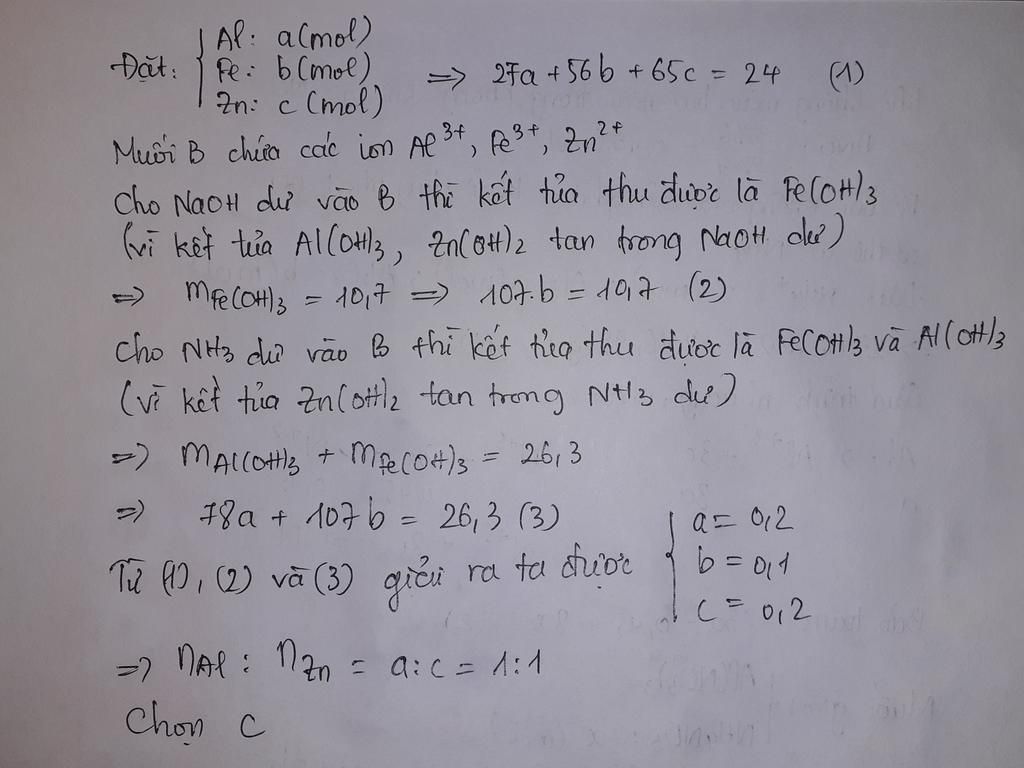 Đặt: { Al: a (mol)
Fe: b (mol) => 27a + 56b + 65c = 24 (1)
Zn: c (mol)
Muối B chứa các ion Al³⁺, Fe³⁺, Zn²⁺
Cho NaOH dư vào B thì kết tủa thu được là Fe(OH)3
(vì kết tủa Al(OH)3, Zn(OH)2 tan trong NaOH dư)
=> mFe(OH)3 = 10,7 => 107.b = 10,7 (2)
Cho NH3 dư vào B thì kết tủa thu được là Fe(OH)3 và Al(OH)3
(vì kết tủa Zn(OH)2 tan trong NH3 dư)
=> mAl(OH)3 + mFe(OH)3 = 26,3
=> 78a + 107b = 26,3 (3)
Từ (1), (2) và (3) giải ra ta được { a = 0,2
b = 0,1
c = 0,2
=> nAl : nZn = a:c = 1:1
Chọn C